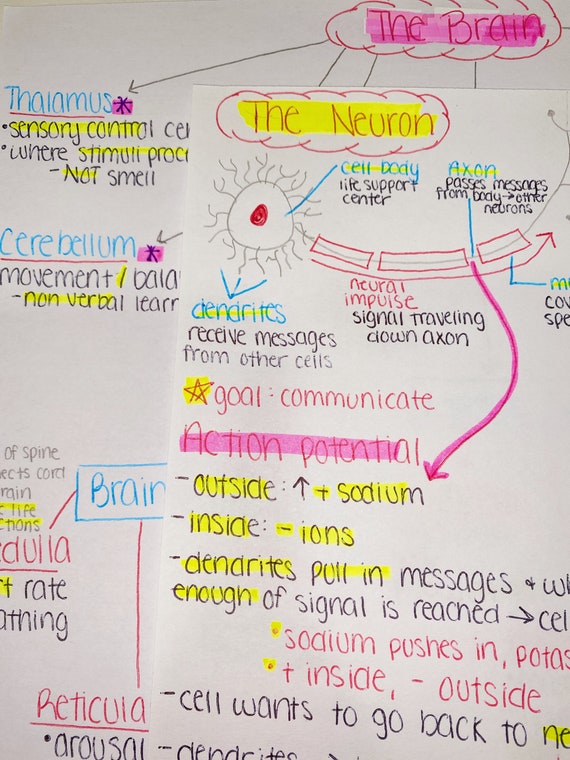 The Brain
Thalamus*
•sensory control
•where stimuli
- NOT smell
Cerebellum *
movement /
- non verbal
of spine
cord
life
Brain
rate
The Neuron
cell body
life support
center
Axon
passes messages
from body→other
neurons
dendrites
receive messages
from other cells
neural
impulse
signal traveling
down axon
☆ goal: communicate
Action potential
- outside: ↑ + sodium
- inside: - ions
- dendrites pull in messages +
enough of signal is reached →
• sodium pushes in,
• + inside, - outside
- cell wants to go back to
- dendrites
•arousal